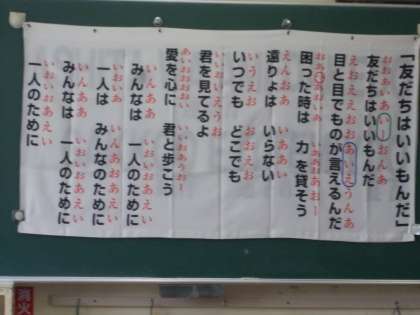 「友だちはいいもんだ」
おおいあ いー おんあ
友だちはいいもんだ
おえおえお おあいえうんあ
目と目でものが言えるんだ
困った時は 力を貸そう
えんおあ いあい
遠りょは いらない
いうえお おおえお
いつでも どこでも
いいおいえうお
君を見てるよ
あいおおおい いいおあうおー
愛を心に 君と歩こう
いんああ いおいおあえい
みんなは 一人のために
いおいあ いんあおあえい
一人は みんなのために
いんああ いおいおあえい
みんなは 一人のために
いおいおあえい
一人のために
消火